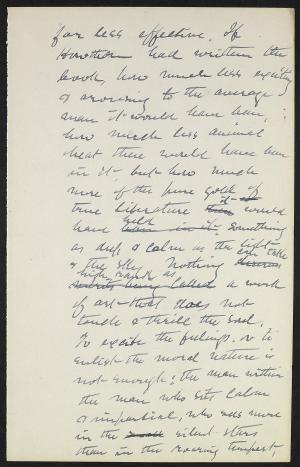 far less effective. If
Hawthorn had written the
book, how much less exciting
& arousing to the average
man it would have been;
how much less animal
heat there would have been
in it, but how much
more of the pure gold of
true literature it would
have held something
as deep & calm as the light
of the sky. Nothing can take
high rank as
being called a work
of art that does not
touch & thrill the soul.
To excite the feelings, or to
enlist the moral nature is
not enough; the man within
the man who sits calm
& impartial, who sees more
in the silent stars
than in the roaring tempest,